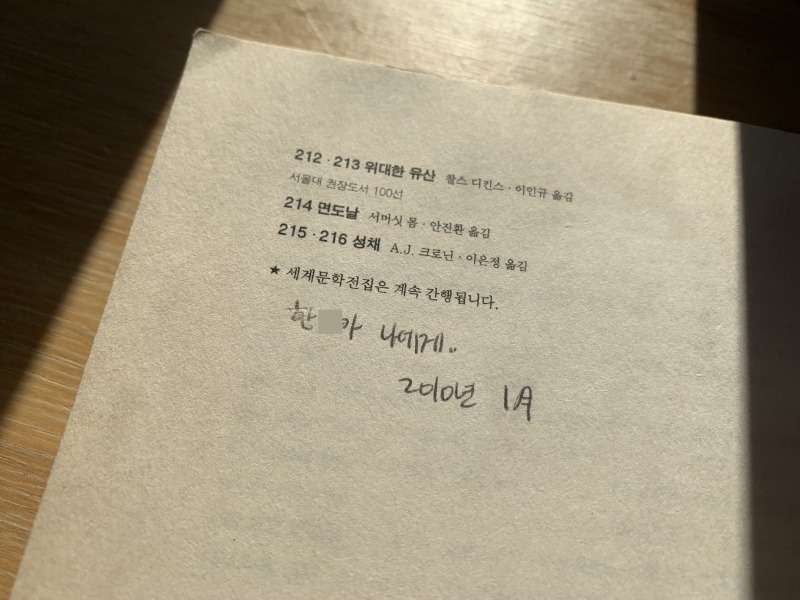 212 · 213 위대한 유산 찰스 디킨스 · 이인규 옮김
서울대 권장도서 100선
214 면도날 서머싯 몸 · 안진환 옮김
215 · 216 성채 A.J. 크로닌 · 이은정 옮김
★ 세계문학전집은 계속 간행됩니다.
한 가 나에게..
2010년 1月